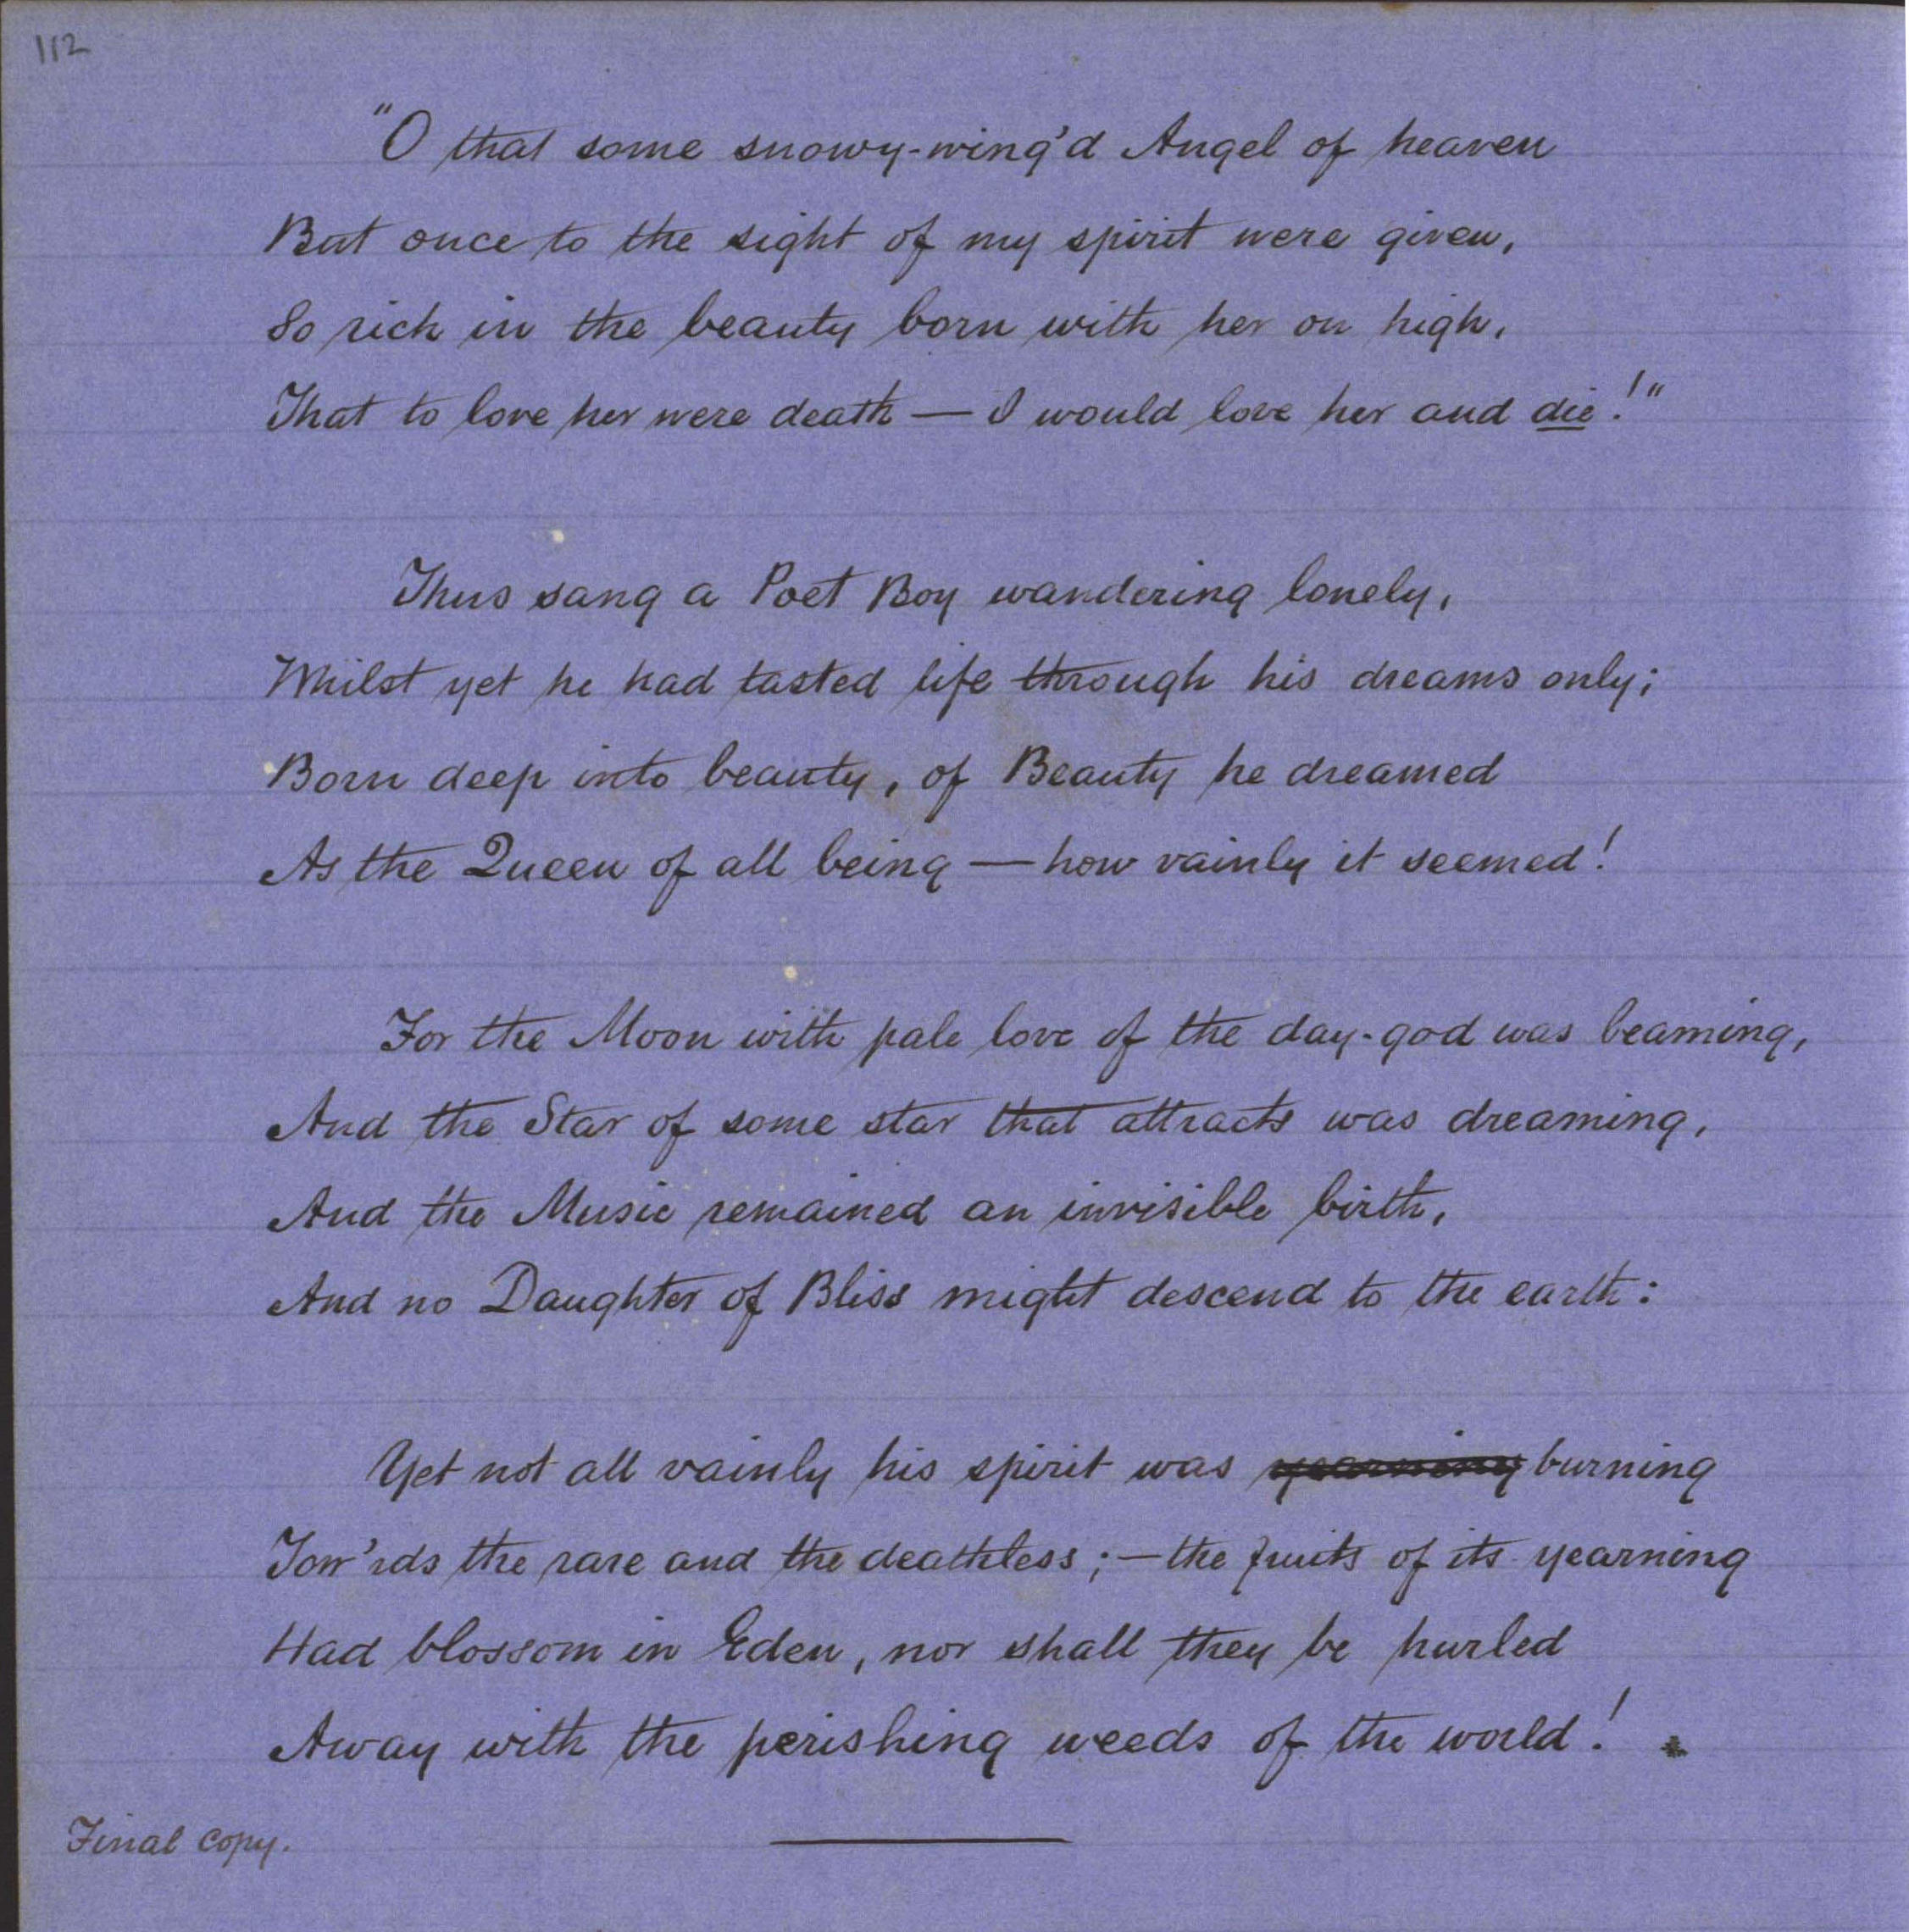 112
"O that some snowy-wing'd Angel of heaven
But once to the sight of my spirit were given,
So rich in the beauty born with her on high,
That to love her were death — I would love her and die!"
Thus sang a Poet Boy wandering lonely,
Whilst yet he had tasted life through his dreams only;
Born deep into beauty, of Beauty he dreamed
As the Queen of all being — how vainly it seemed!
For the Moon with pale love of the day-god was beaming,
And the Star of some star that attracts was dreaming,
And the Music remained an invisible birth,
And no Daughter of Bliss might descend to the earth:
Yet not all vainly his spirit was yearning burning
Tow'rds the rare and the deathless; — the fruits of its yearning
Had blossom in Eden, nor shall they be hurled
Away with the perishing weeds of the world!
Final copy.